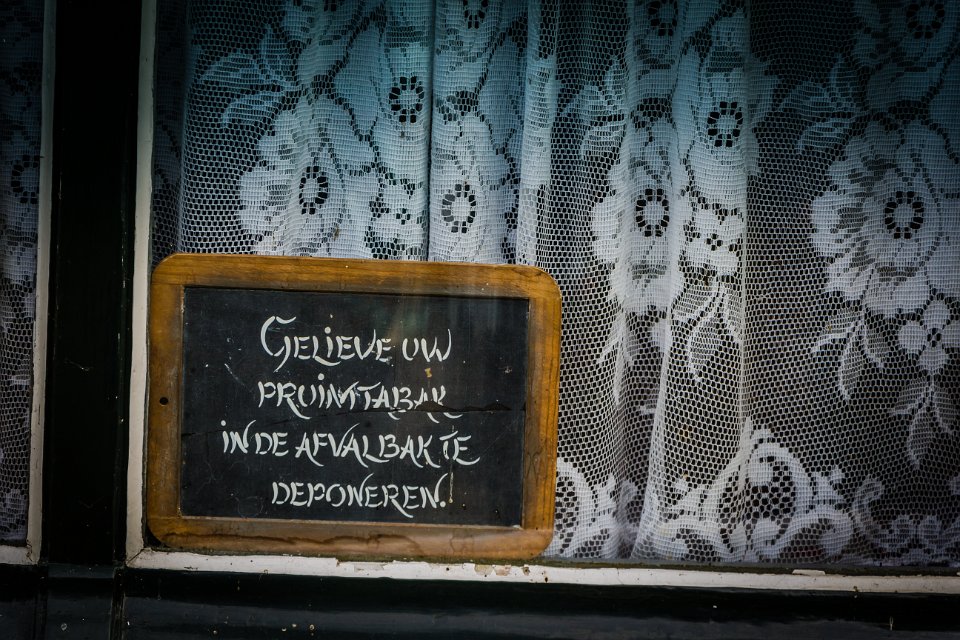 Gelieve uw
pruimtabak
in de afvalbak te
deponeren!